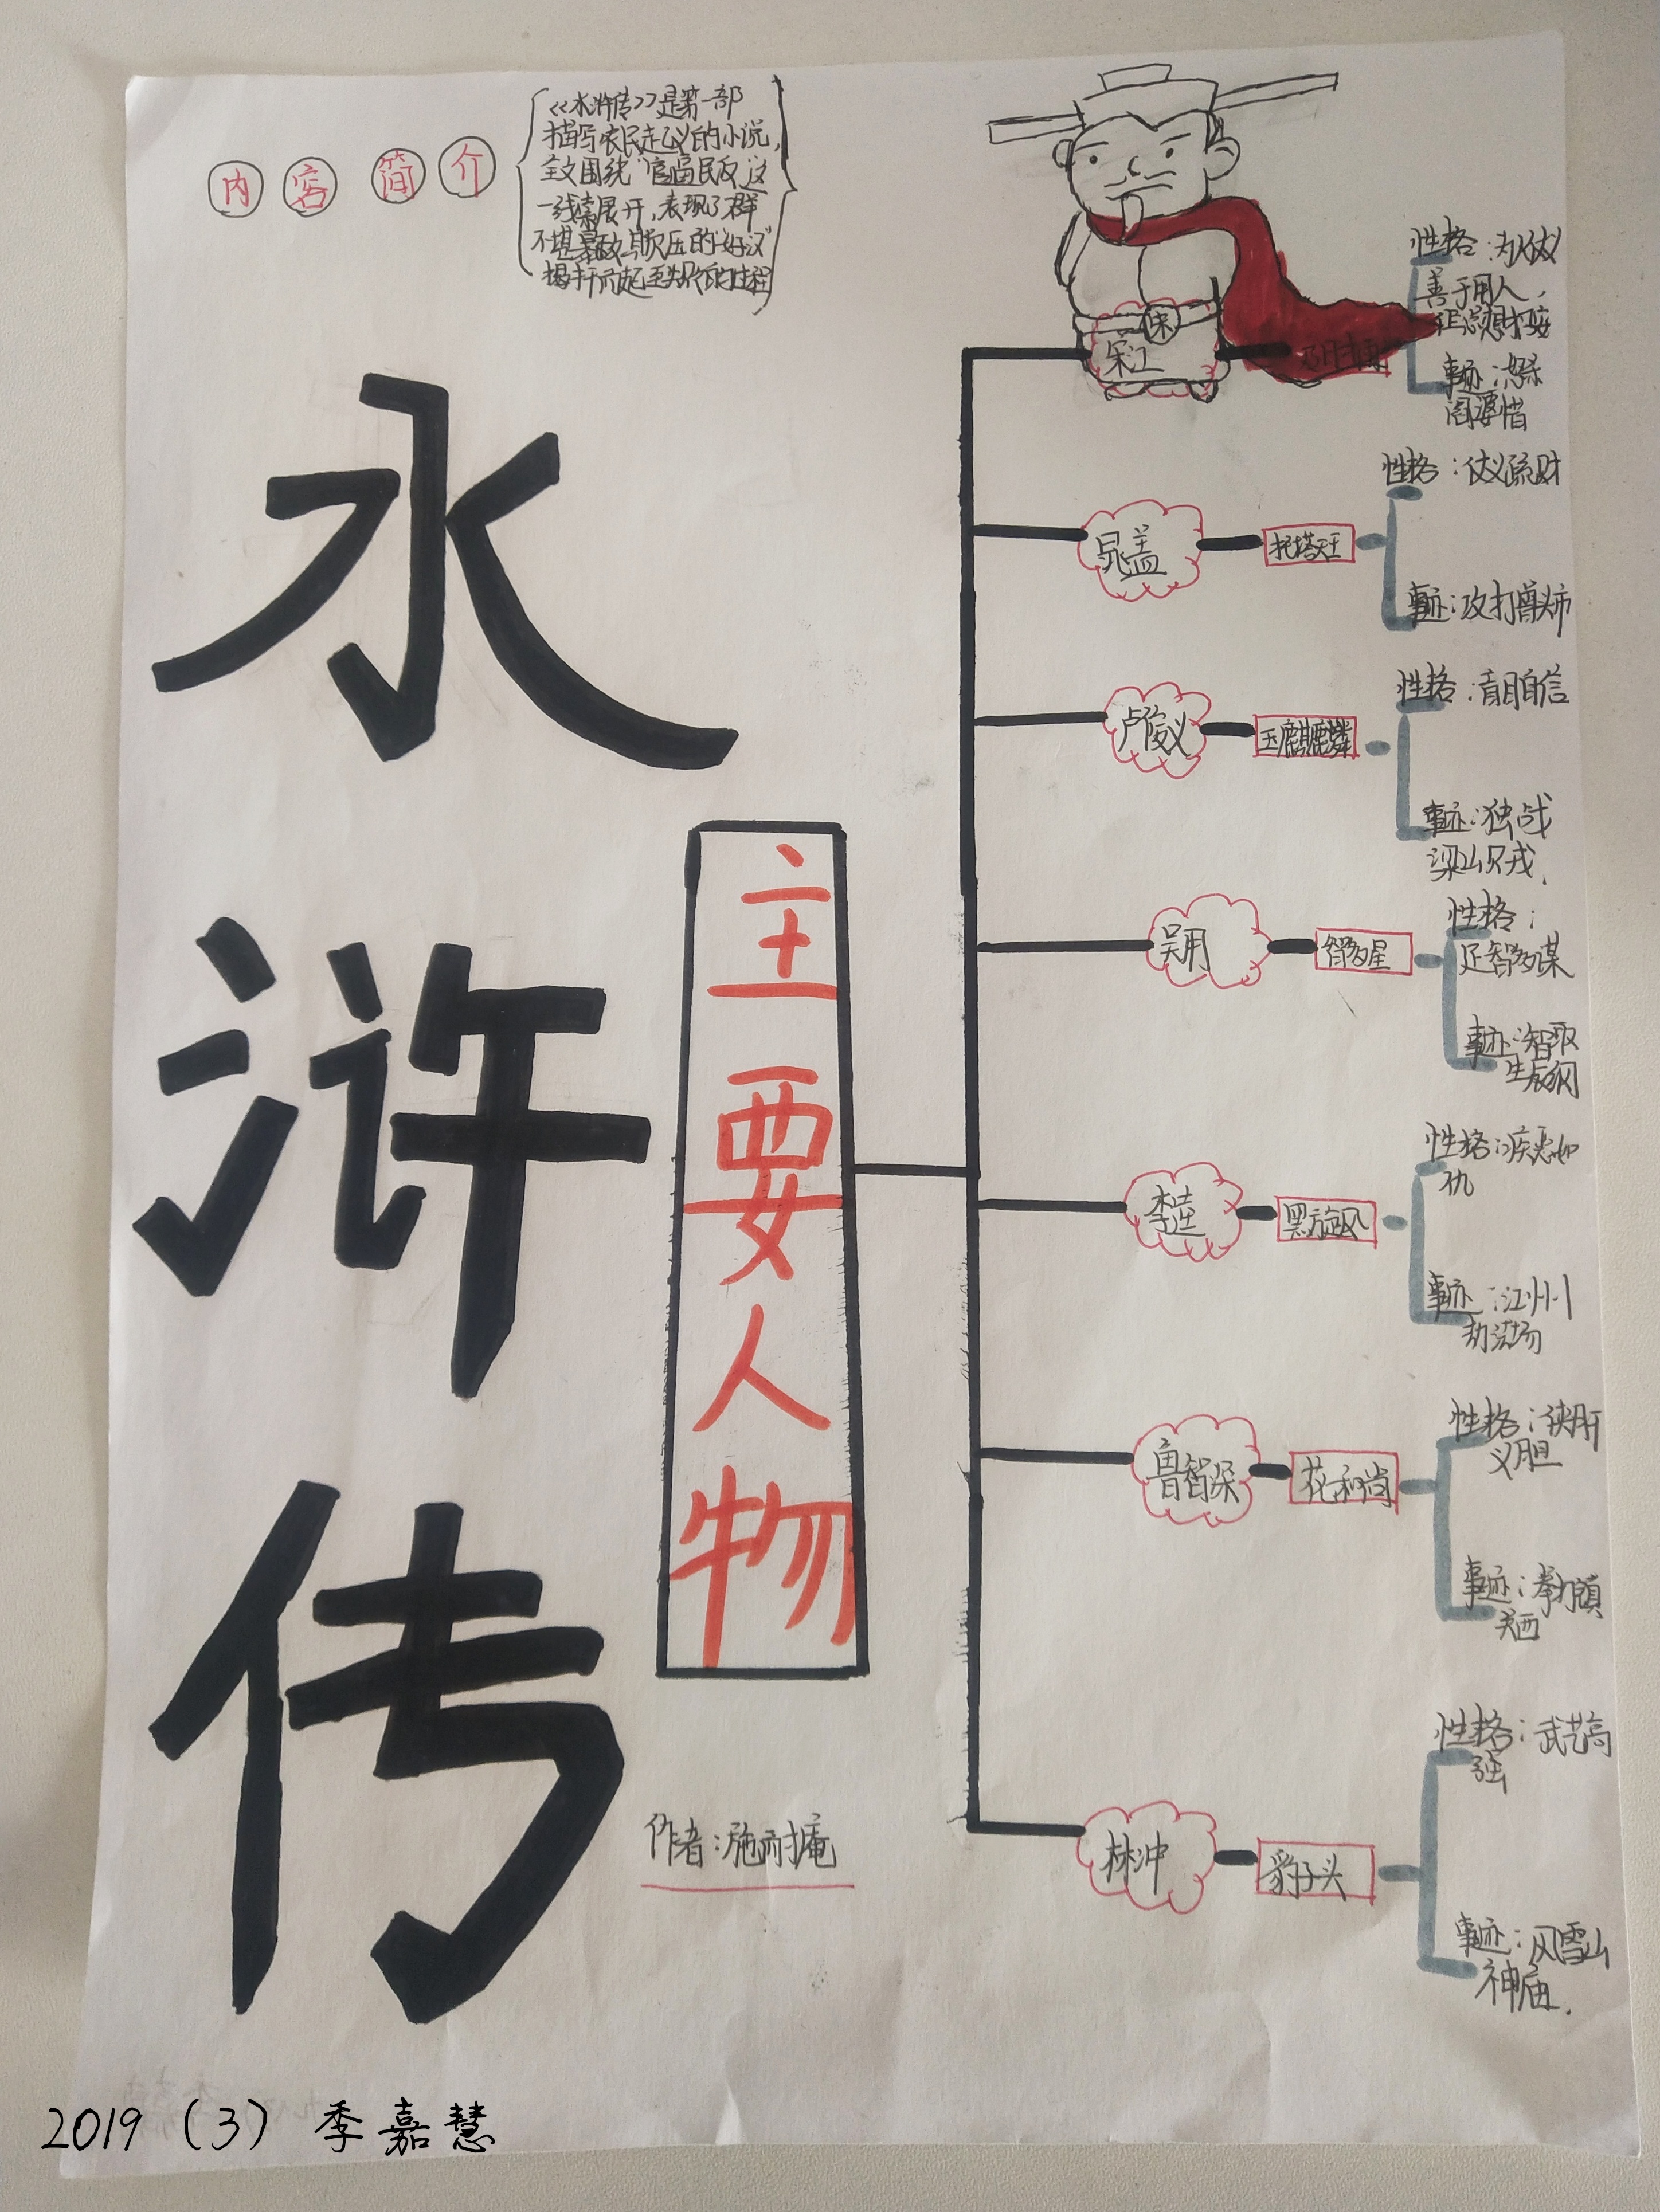 内容简介
《水浒传》是第一部
描写农民起义的小说,
全文围绕"官逼民反"这
一线索展开,表现了一群
不堪暴政欺压的"好汉"
揭竿而起至失败的过程
水浒传
主要人物
作者:施耐庵
宋
宋江
及时雨
性格:为人仗义
善于用人,
事迹:怒杀
阎婆惜
晁盖
托塔天王
性格:仗义疏财
事迹:攻打曾头市
卢俊义
玉麒麟
性格:盲目自信
事迹:独战
梁山
吴用
智多星
性格:
足智多谋
事迹:智取
生辰纲
李逵
黑旋风
性格:疾恶如
仇
事迹:江州
劫法场
鲁智深
花和尚
性格:侠肝
义胆
事迹:拳打镇
关西
林冲
豹子头
性格:武艺高
强
事迹:风雪山
神庙.
2019(3)季嘉慧